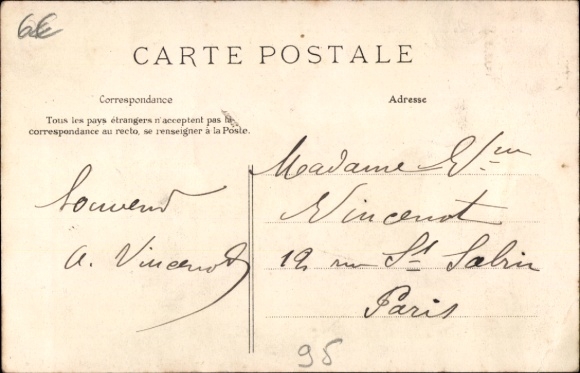 6€
CARTE POSTALE
Correspondance
Tous les pays étrangers n'acceptent pas la
correspondance au recto, se renseigner à la Poste.
Souvenir
A. Vincenot
Adresse
Madame Vve
Vincenot
12 rue St Sabin
Paris
95